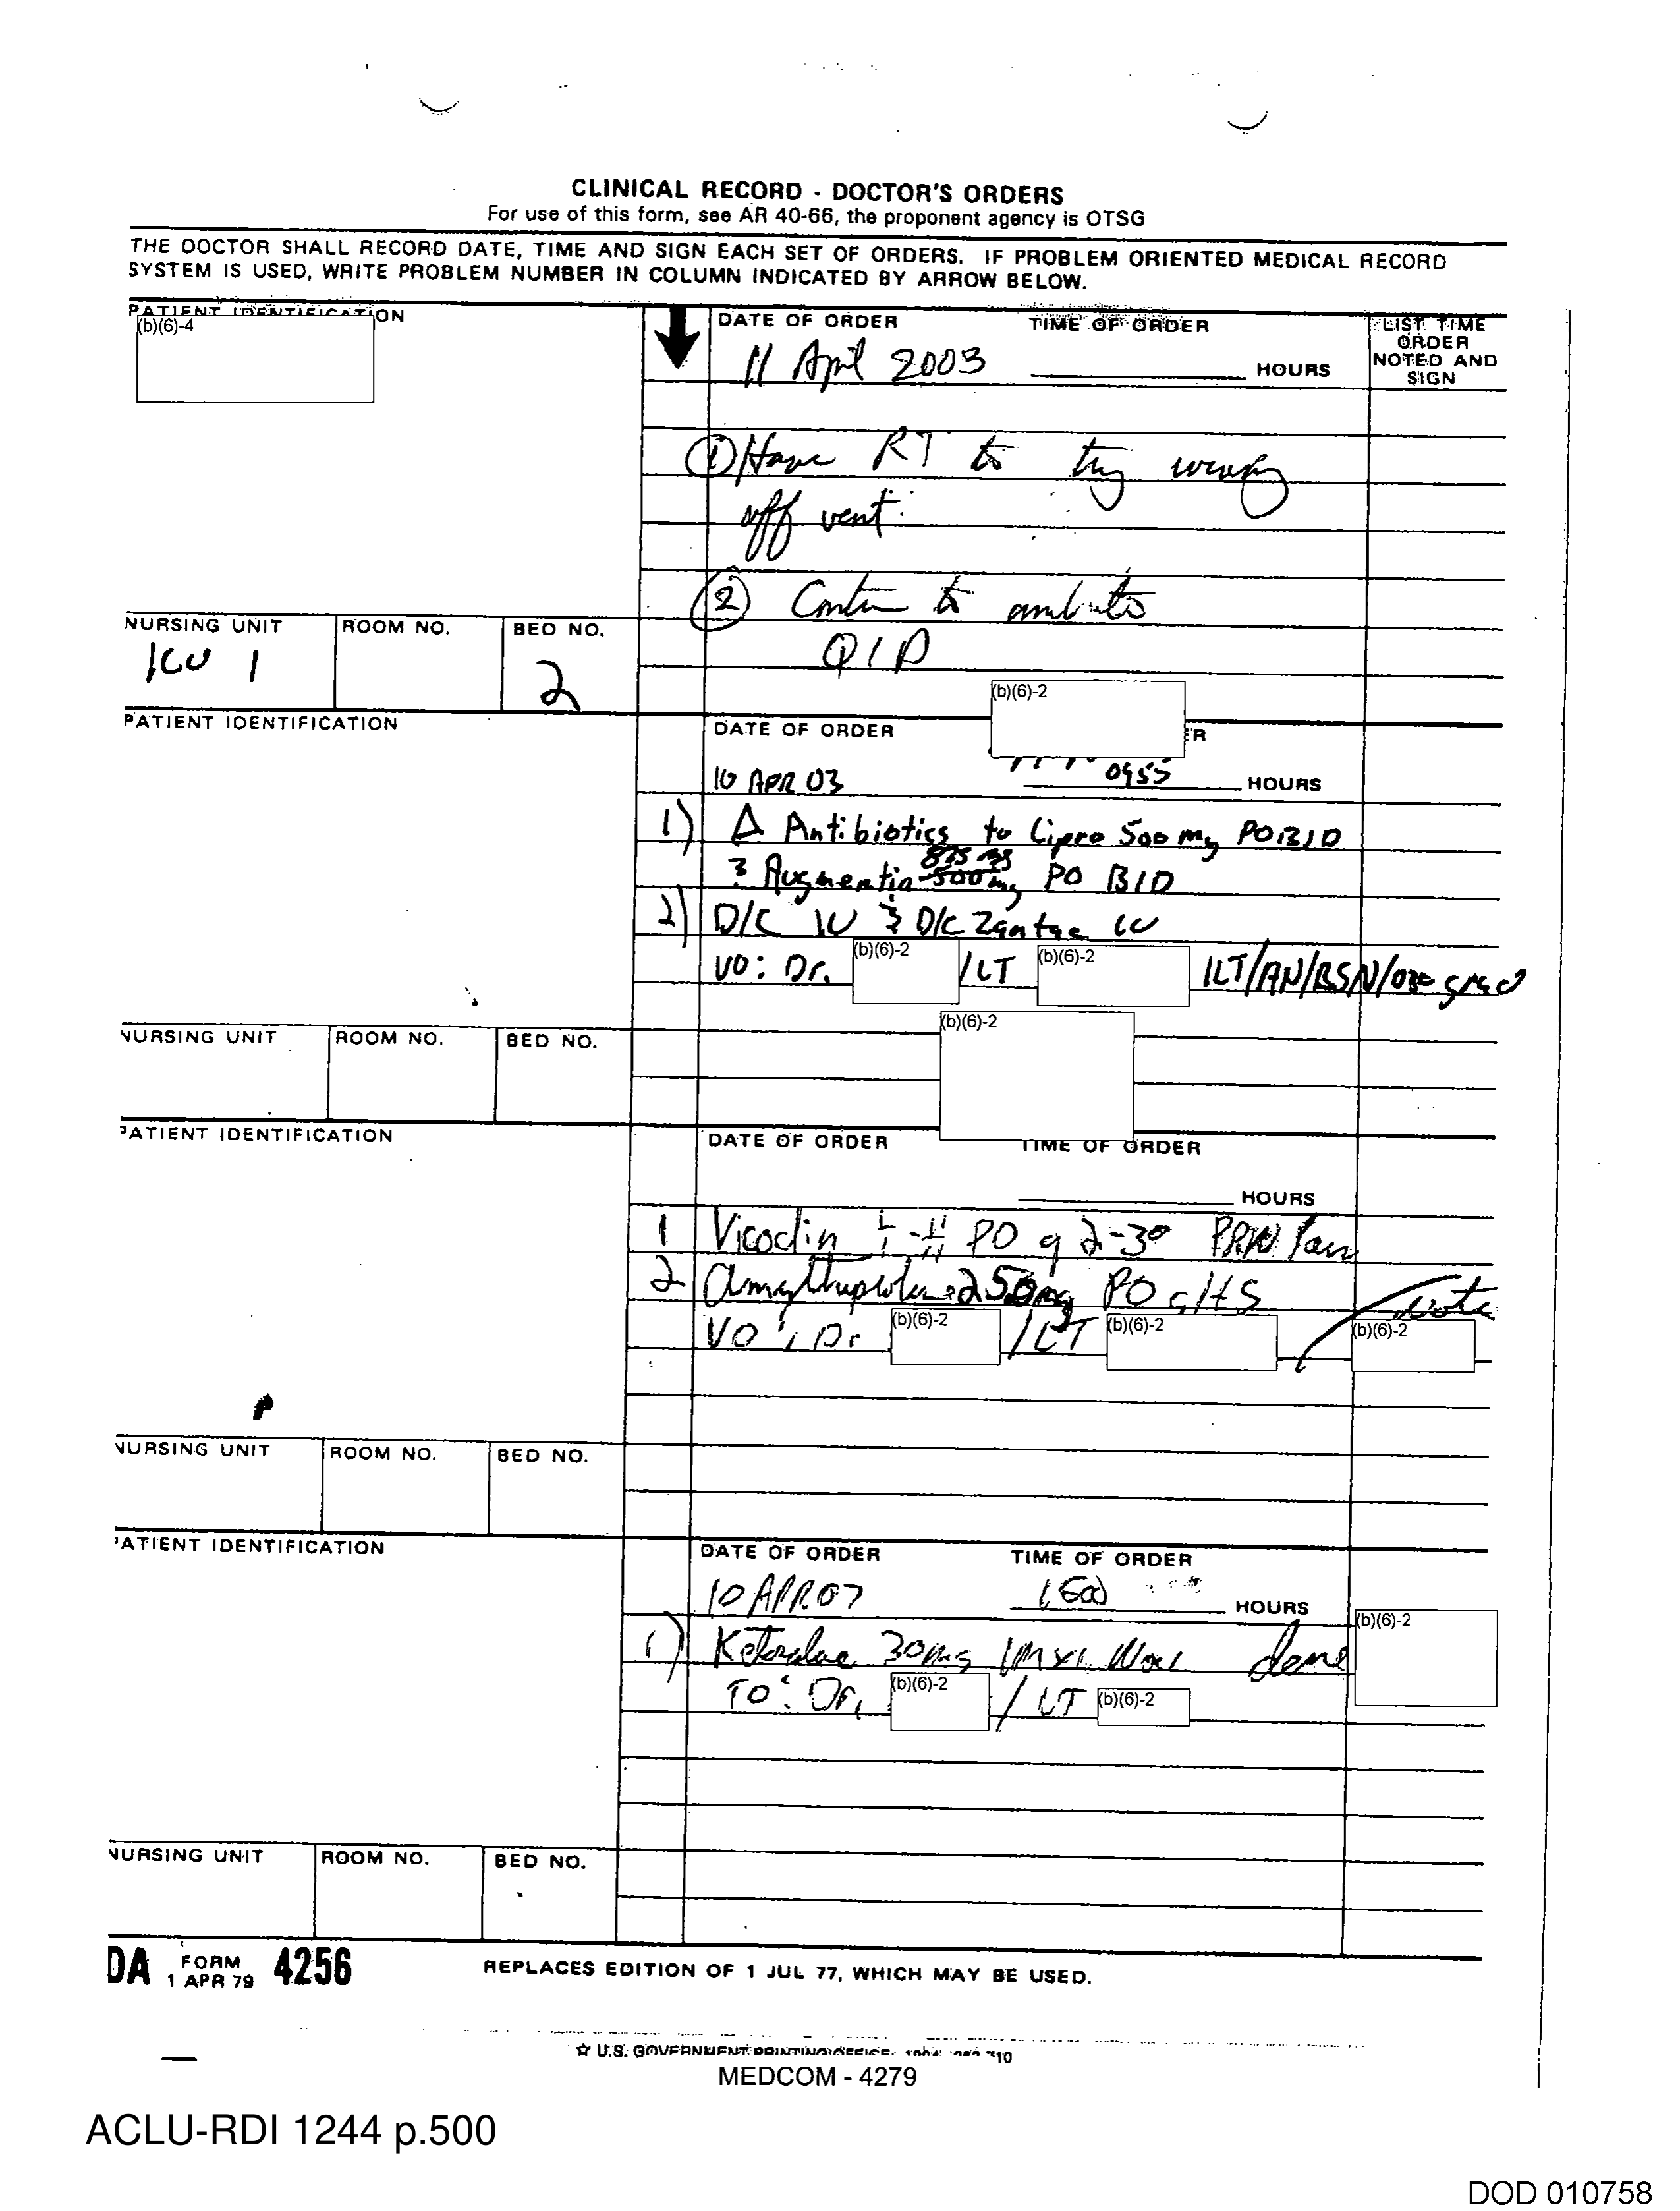 CLINICAL RECORD - DOCTOR'S ORDERS
For use of this form, see AR 40-66, the proponent agency is OTSG
THE DOCTOR SHALL RECORD DATE, TIME AND SIGN EACH SET OF ORDERS. IF PROBLEM ORIENTED MEDICAL RECORD
SYSTEM IS USED, WRITE PROBLEM NUMBER IN COLUMN INDICATED BY ARROW BELOW.
PATIENT IDENTIFICATION
(b)(6)-4
DATE OF ORDER TIME OF ORDER
11 April 2003 HOURS
LIST TIME
ORDER
NOTED AND
SIGN
① Have RT to try
off vent.
② to
QID
(b)(6)-2
NURSING UNIT ROOM NO. BED NO.
ICU 1 2
PATIENT IDENTIFICATION
DATE OF ORDER ER
10 APR 03 0955 HOURS
1) Δ Antibiotics to Cipro 500 mg PO BID
875 mg
& Augmentin 500 mg PO BID
2) D/C IV & D/C Zantac IV
VO: Dr. (b)(6)-2 /LT (b)(6)-2 1LT/AN/BSN/
(b)(6)-2
NURSING UNIT ROOM NO. BED NO.
PATIENT IDENTIFICATION
DATE OF ORDER TIME OF ORDER
HOURS
1 Vicodin I-II PO q 2-3° PRN Pain
2 50mg PO qHS
VO: Dr (b)(6)-2 /LT (b)(6)-2 (b)(6)-2
NURSING UNIT ROOM NO. BED NO.
PATIENT IDENTIFICATION
DATE OF ORDER TIME OF ORDER
10 APR 07 1500 HOURS
1) Ketorolac 30mg IM x1 Now done (b)(6)-2
TO: Dr. (b)(6)-2 / LT (b)(6)-2
NURSING UNIT ROOM NO. BED NO.
DA FORM 4256
1 APR 79
REPLACES EDITION OF 1 JUL 77, WHICH MAY BE USED.
☆ U.S. GOVERNMENT PRINTING OFFICE:
MEDCOM - 4279
ACLU-RDI 1244 p.500
DOD 010758